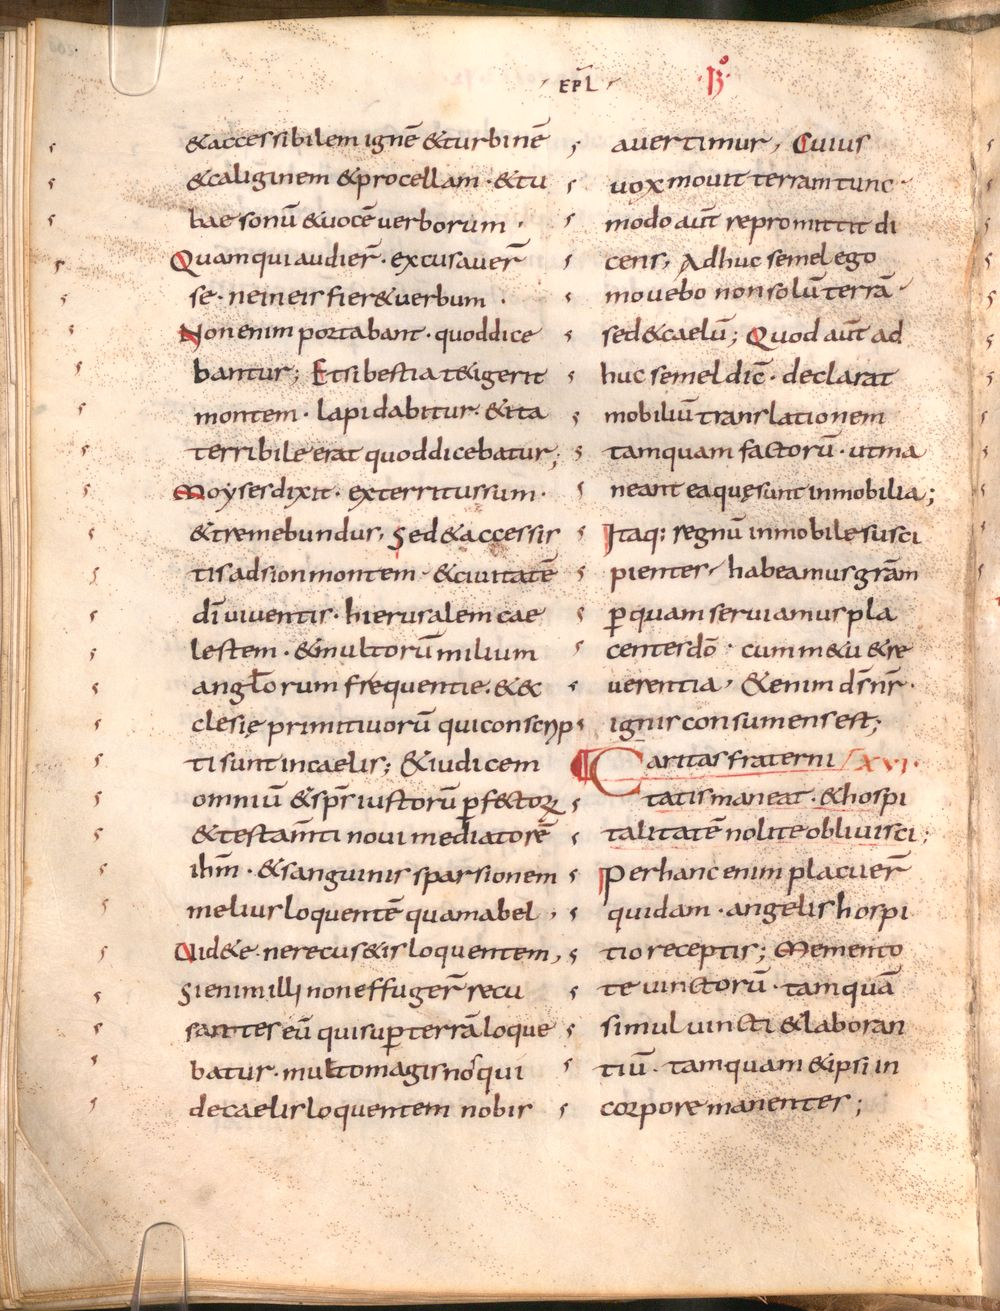 · EPL̄ ·
·B̊·
&accessibilem ignē &turbinē
&caliginem &procellam · &tu
bae sonū &uocē uerborum ·
Quam qui audier̄ · excusauer̄
se · ne in eis fier& uerbum ·
Non enim portabant · quod dice
bantur; Et si bestia t&igerit
montem · lapidabitur · &ita
terribile erat quod dicebatur;
Moyses dixit · exterritus sum ·
&tremebundus, Sed &accessis
tis ad sion montem · &ciuitatē
dī uiuentis · hierusalem cae
lestem · &multorū milium
angl̄orum frequentie · &&
clesię primitiuorū qui conscrip
ti sunt in caelis; &iudicem
omniū &sp̄s iustorū ꝑf&toꝝ
&testam̄ti noui mediatorē
ihm̄ · &sanguinis sparsionem
melius loquentē quam abel ,
Uid&e · ne recus&is loquentem,
Si enim illi non effuger̄ recu
santes eū qui suꝑ terrā loque
batur · multo magis nos qui
de caelis loquentem nobis
auertimur, Cuius
uox mouit terram tunc ·
modo aut̄ repromittit di
cens, Adhuc semel ego
mouebo non solū terrā ·
sed &caelū; Quod aut̄ ad
huc semel dic̄ · declarat
mobiliū translationem
tamquam factorū · ut ma
neant ea quę sunt inmobilia;
Itaq: regnū inmobile susci
pientes, habeamus gr̄am
ꝑ quam seruiamus pla
centes dō · cum m&u &re
uerentia, &enim ds̄ nr̄ ·
ignis consumens est;
Caritas fraterni XVI ·
tatis maneat · &hospi
talitatē nolite obliuisci;
Per hanc enim placuer̄
quidam · angelis hospi
tio receptis; Memento
te uinctorū · tamquā
simul uincti &laboran
tiū · tamquam &ipsi in
corpore manentes;